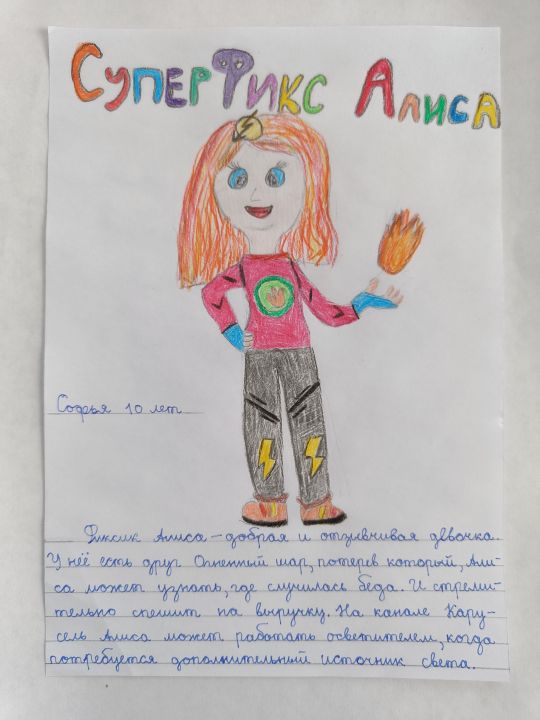 СУПЕРФИКС АЛИСА
Софья 10 лет
Фиксик Алиса – добрая и отзывчивая девочка.
У неё есть друг Огненный шар, потерев который, Али-
са может узнать, где случилась беда. И стреми-
тельно спешит на выручку. На канале Кару-
сель Алиса может работать осветителем, когда
потребуется дополнительный источник света.